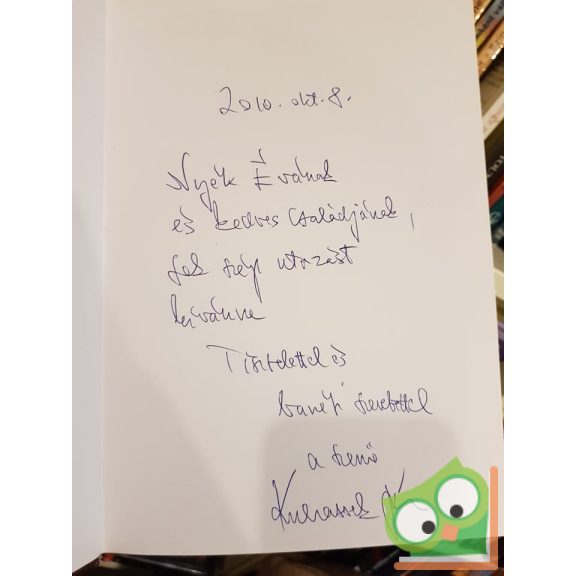 2010. okt. 8.
Nyék Évának
és kedves családjának,
sok szép utazást
kívánva
Tisztelettel és
baráti szeretettel
a szerző